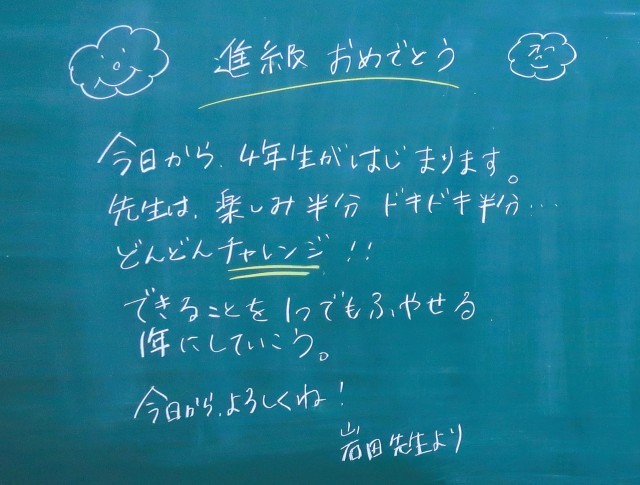 進級 おめでとう
今日から、4年生がはじまります。
先生は、楽しみ半分 ドキドキ半分…
どんどんチャレンジ!!
できることを1つでもふやせる
1年にしていこう。
今日から、よろしくね!
岩田先生より